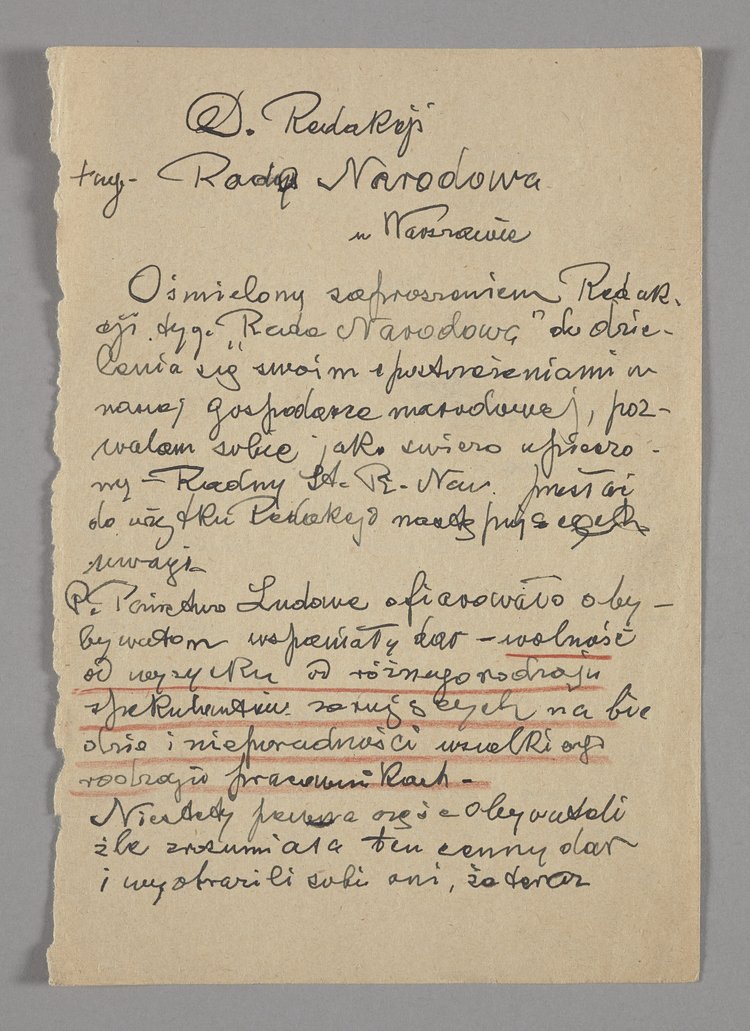 D. Redakcji
tyg. Rada Narodowa
w Warszawie
Ośmielony zaproszeniem Redak-
cji tyg. "Rada Narodowa" do dzie-
lenia się swoimi spostrzeżeniami w
naszej gospodarce narodowej, poz-
walam sobie jako świeżo upieczo-
ny - Radny St. R. Nar. przesłać
do użytku Redakcji następujących
uwagi.
Państwo Ludowe ofiarowało oby-
bywatom wspaniały dar - wolność
od wyzysku od różnego rodzaju
spekulantów żerujących na bie
dzie i nieporadności wszelkiego
rodzaju pracownikach -
Niestety pewna część obywateli
źle zrozumiała ten cenny dar
i wyobrazili sobie oni, że teraz